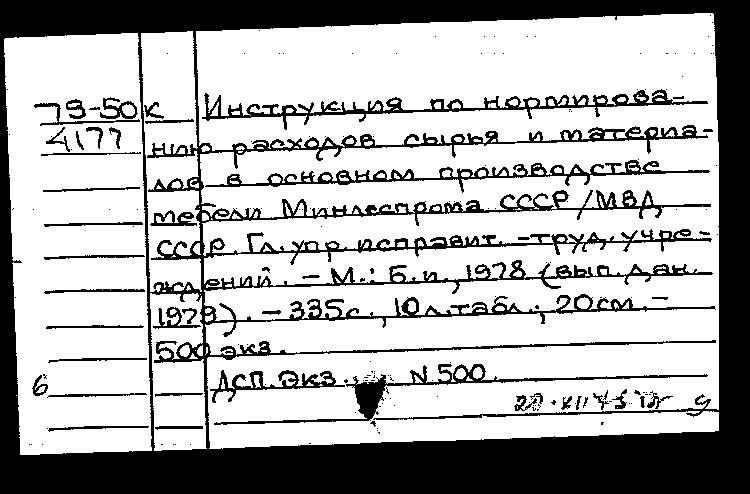 79-50к Инструкция по нормирова-
4177 нию расходов сырья и материа-
лов в основном производстве
мебели Минлеспрома СССР/МВД
СССР. Гл. упр. исправит.-труд. учре-
ждений. - М.: Б.и., 1978 (вып. дан.
1979). - 335с., 10 л. табл.; 20см. -
500 экз.
6 ДСП. Экз. N 500.